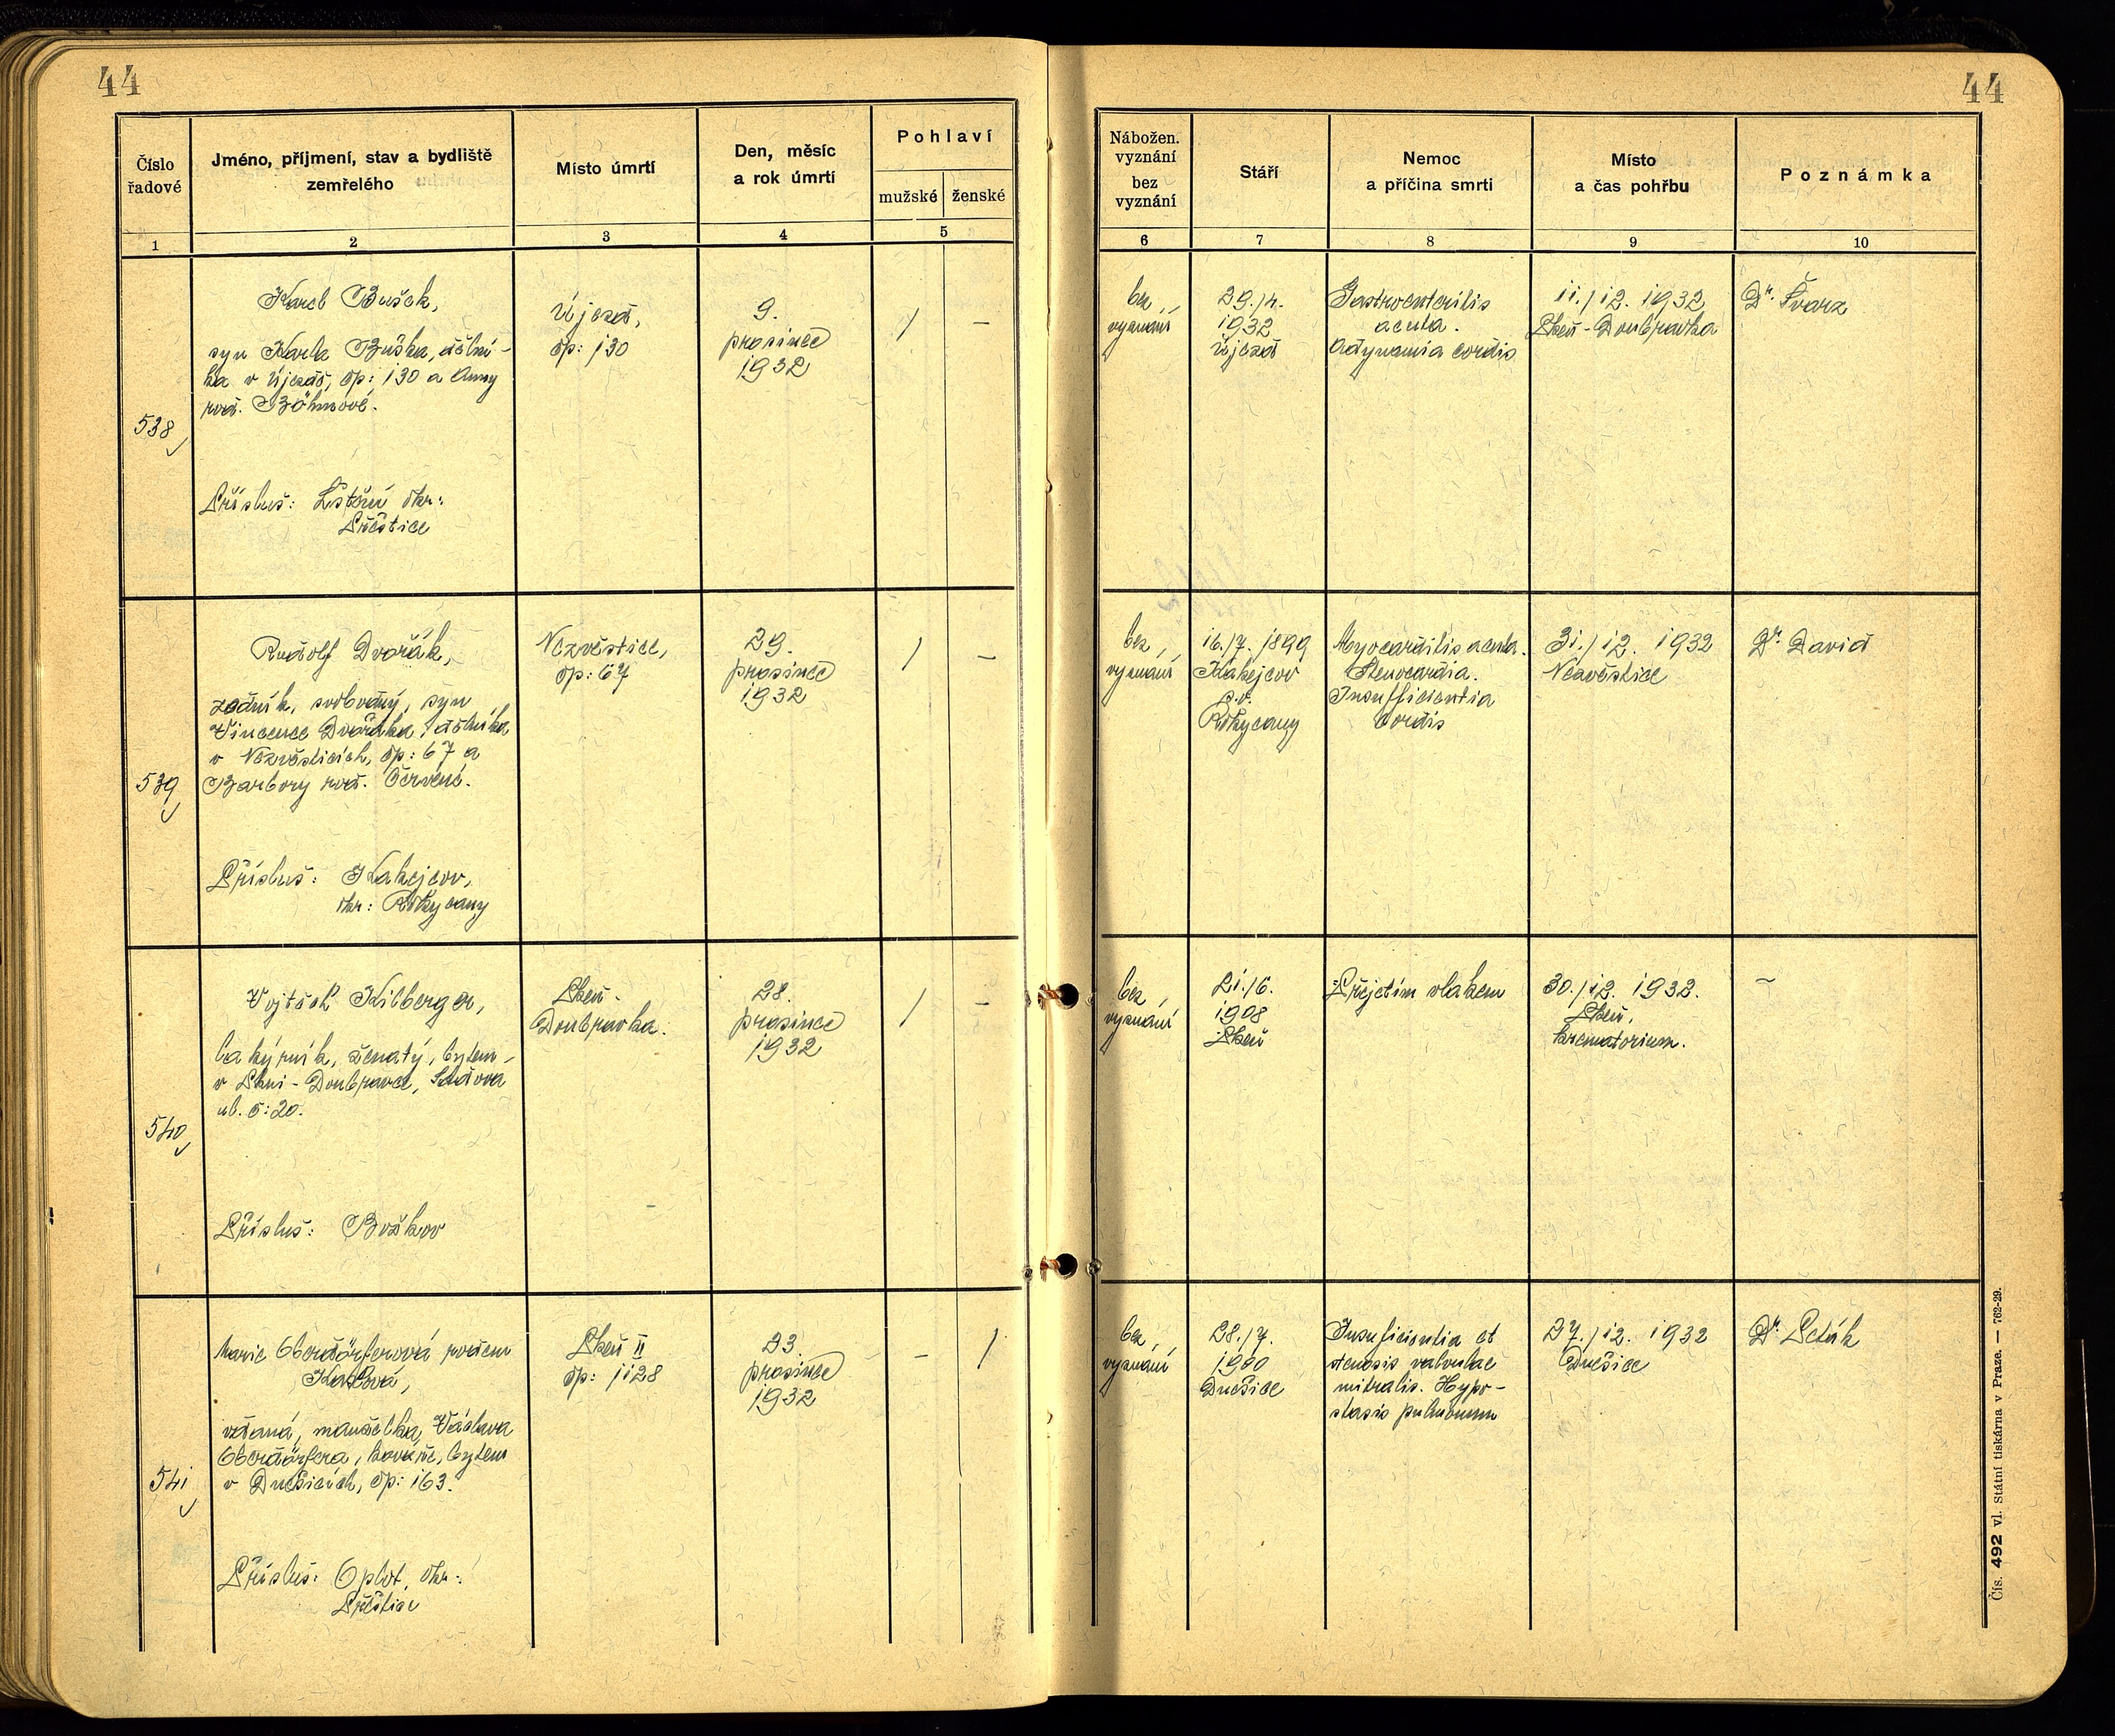 44
44
Číslo
řadové
Jméno, příjmení, stav a bydliště
zemřelého
Místo úmrtí
Den, měsíc
a rok úmrtí
Pohlaví
mužské
ženské
Nábožen.
vyznání
bez
vyznání
Stáří
Nemoc
a příčina smrti
Místo
a čas pohřbu
Poznámka
1
2
3
4
5
6
7
8
9
10
538
Karel Bušek,
syn Karla Buška, dělní-
ka v Újezdě, čp: 130 a Anny
roz. Böhmové.
Přísluš: okr:
Přeštice
Újezd,
čp: 130
9.
prosince
1932
/
–
bez
vyznání
29./4.
1932
Újezd
Gastroenterilis
acuta.
Adynamia cordis
11./12. 1932
Plzeň-Doubravka
Dr. Švarz
539
Rudolf Dvořák,
zedník, svobodný, syn
Vincence Dvořáka, dělníka
v Nezvěsticích, čp: 67 a
Barbory roz. Červené.
Přísluš: Kakejcov,
okr: Rokycany
Nezvěstice,
čp: 67
29.
prosince
1932
/
–
bez
vyznání
16./7. 1899
Kakejcov
p.o.
Rokycany
Myocarditis acuta.
Stenocardia.
Insufficientia
cordis
31./12. 1932
Nezvěstice
Dr. David
540
Vojtěch Kilberger,
ženatý, bytem
v Plzni-Doubravce,
ul. č: 20.
Přísluš: Božkov
Plzeň-
Doubravka.
28.
prosince
1932
/
–
bez
vyznání
21./6.
1908
Plzeň
Přejetím vlakem
30./12. 1932.
Plzeň,
krematorium.
–
541
Marie Oberdörferová rozem
vdaná, manželka Václava
Oberdörfera, kováře, bytem
v Dnešicích, čp: 163.
Přísluš: Oplot, okr:
Přeštice
Plzeň II
čp: 1128
23.
prosince
1932
–
/
bez
vyznání
28./7.
1900
Dnešice
Insuficientia et
stenosis valvulae
mitralis. Hypo-
stasis pulmonum
27./12. 1932
Dnešice
Dr. Leták
Čís. 492 vl. Státní tiskárna v Praze. — 762-29.